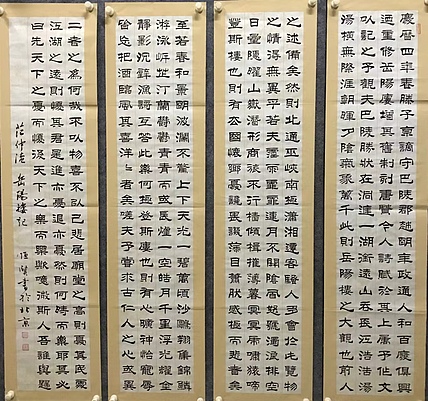 慶曆四年春滕子京謫守巴陵郡越明年政通人和百廢俱興
迺重修岳陽樓增其舊制刻唐賢今人詩賦於其上屬予作文
以記之予觀夫巴陵勝狀在洞庭一湖銜遠山吞長江浩浩湯
湯橫無際涯朝暉夕陰氣象萬千此則岳陽樓之大觀也前人
之述備矣然則北通巫峽南極瀟湘遷客騷人多會於此覽物
之情得無異乎若夫霪雨霏霏連月不開陰風怒號濁浪排空
日星隱耀山嶽潛形商旅不行檣傾楫摧薄暮冥冥虎嘯猿啼
登斯樓也則有去國懷鄉憂讒畏譏滿目蕭然感極而悲者矣
至若春和景明波瀾不驚上下天光一碧萬頃沙鷗翔集錦鱗
游泳岸芷汀蘭鬱鬱青青而或長煙一空皓月千里浮光耀金
靜影沉璧漁歌互答此樂何極登斯樓也則有心曠神怡寵辱
皆忘把酒臨風其喜洋洋者矣嗟夫予嘗求古仁人之心或異
二者之為何哉不以物喜不以己悲居廟堂之高則憂其民處
江湖之遠則憂其君是進亦憂退亦憂然則何時而樂耶其必
曰先天下之憂而憂後天下之樂而樂歟噫微斯人吾誰與歸
范仲淹 岳陽樓記 書於北京